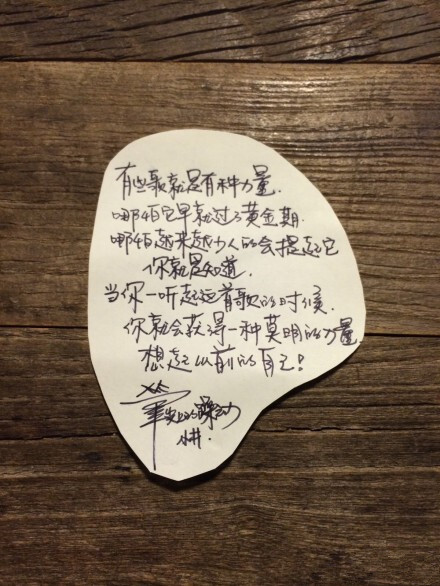 有些歌就是有种力量.
哪怕它早就过了黄金期.
哪怕越来越少人的会提起它
你就是知道.
当你一听起这首歌的时候.
你就会获得一种莫明的力量
想起从前的自己!
笔尖上的躁动
小井.